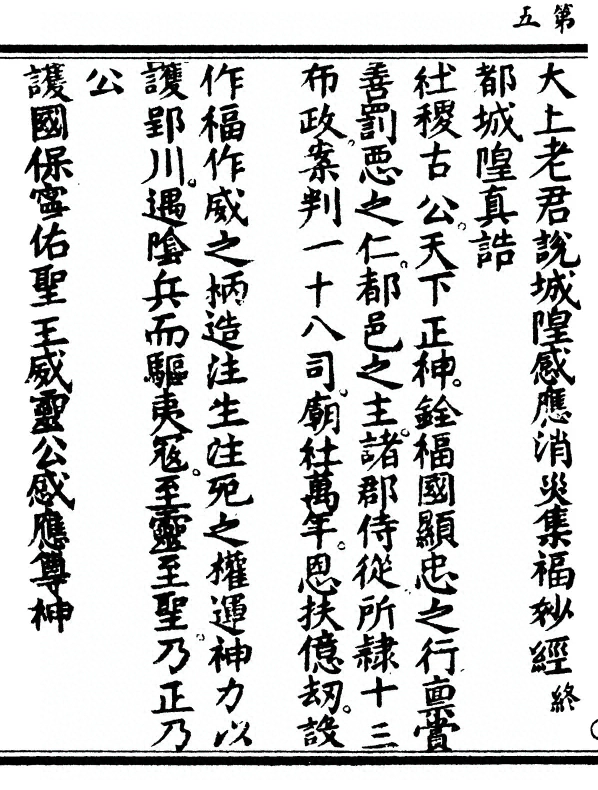 第五
大上老君說城隍感應消災集福妙經終
都城隍真誥
社稷古公。天下正神。銓福國顯忠之行。稟賞
善罰惡之仁。都邑之主。諸郡侍從。所隸十三
布政。案判一十八司。廟社萬年。恩扶億劫。設
作福作威之柄造注生注死之權運神力以
護郢川。遇陰兵而驅夷寇。至靈至聖。乃正乃
公
護國保寧佑聖王威靈公感應尊神